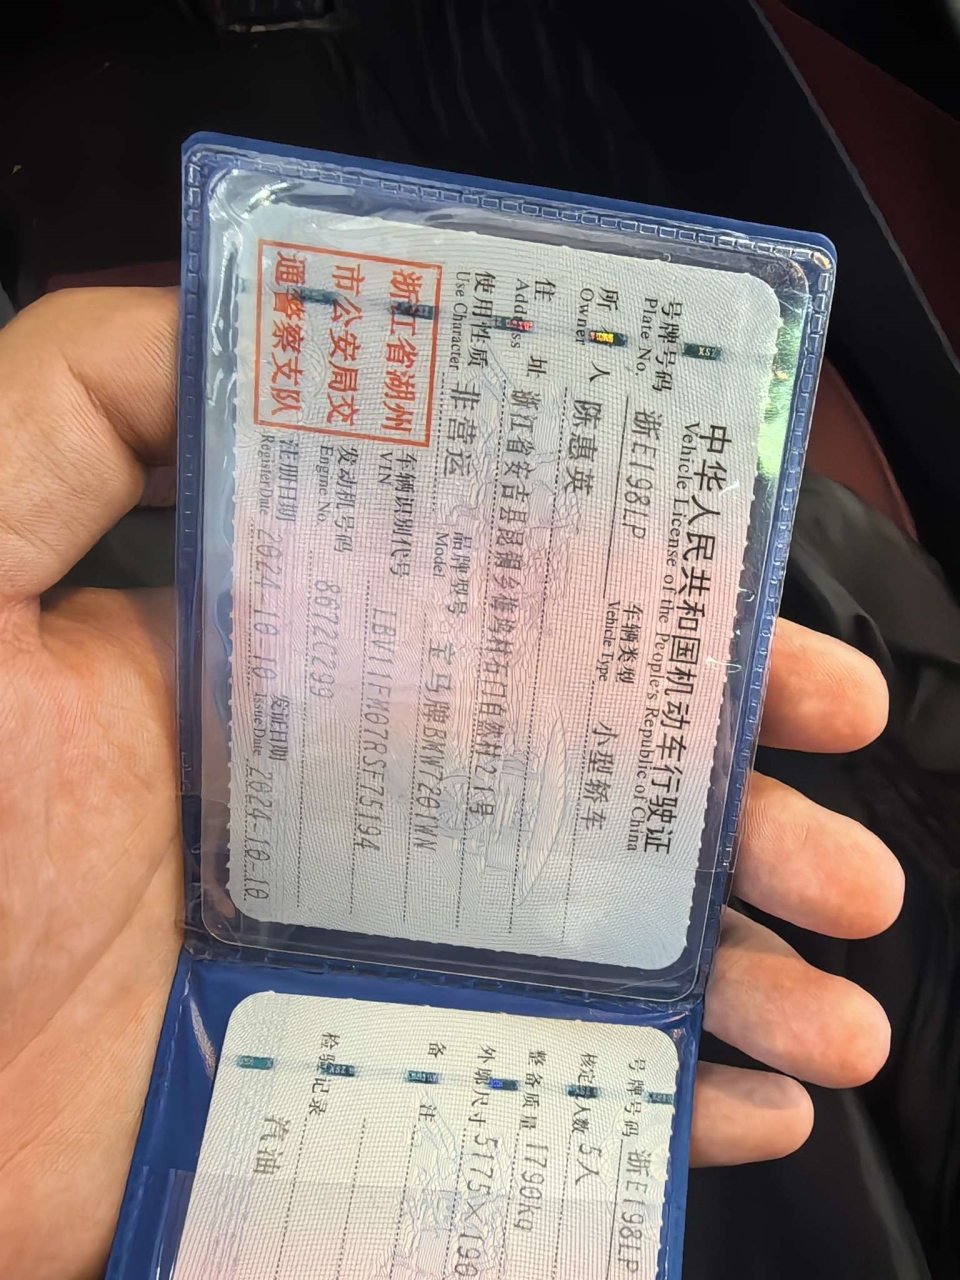 中华人民共和国机动车行驶证
Vehicle License of the People's Republic of China
号牌号码 浙E198LP 车辆类型 小型轿车
Plate No. Vehicle Type
所有人 陈惠英
Owner
住址 浙江省安吉县昆铜乡梅坞村石臼自然村21号
Address
使用性质 非营运 品牌型号 宝马牌BMW7201WN
Use Character Model
浙江省湖州
市公安局交
通警察支队
车辆识别代号 LBV11FM07RSE75194
VIN
发动机号码 8072C299
Engine No.
注册日期 2024-10-10 发证日期 2024-10-10
Register Date Issue Date
号牌号码 浙E198LP
核定载人数 5人
整备质量 1790kg
外廓尺寸 5175×190
备注
检验记录
汽油